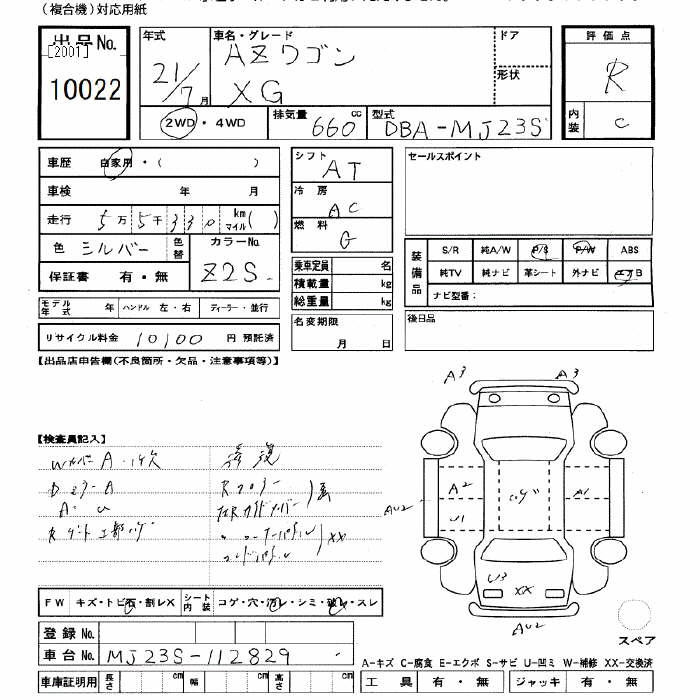 （複合機）対応用紙
出品No. [2001] 10022
年式 21/7月
車名・グレード AZワゴン XG
ドア
形状
評価点 R
内装 C
2WD・4WD
排気量 660 cc
型式 DBA-MJ23S
車歴 自家用・( )
車検 年 月
走行 5万5千330 km マイル( )
色 シルバー 色替
カラーNo. Z2S
保証書 有・無
モデル年式 年 ハンドル 左・右 ディーラー・並行
リサイクル料金 10100 円 預託済
シフト AT
冷房 AC
燃料 G
乗車定員 名
積載量 kg
総重量 kg
名変期限
月 日
セールスポイント
装備品 S/R 純A/W P/S P/W ABS
純TV 純ナビ 革シート 外ナビ エアB
ナビ型番：
後日品
【出品店申告欄(不良箇所・欠品・注意事項等)】
【検査員記入】
Wカバー A・1ケ欠
DミラーA
A U
修復
Rフロアー
XX
A3 A3
A2
U1
AU2
A1
AU2
U3
XX
AU2
FW キズ・トビ石・割レX
シート内装 コゲ・穴・汚レ・シミ・破レ・スレ
登録No.
車台No. MJ23S-112829
車庫証明用 長さ cm 幅 cm 高さ cm
スペア
A-キズ C-腐食 E-エクボ S-サビ U-凹ミ W-補修 XX-交換済
工具 有・無 ジャッキ 有・無